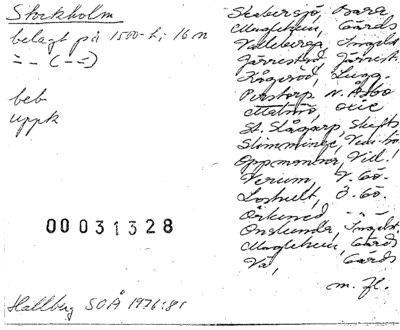 Stockholm
belagt på 1500-t; 16 n
-"- (-"-)
beb
uppk
00031328
Hallberg SOÅ 1976:81
Skabersjö, Bara
Maglehem, Gärds
Valleberga, Ingelst.
Järrestad, Järrest.
Kågeröd, Lugg.
Perstorp N. Åsbo
Malmö, Oxie
St. Slågarp, Skytts
Slimminge, Vem.
Oppmanna, Vill.
Verum, V. Gö.
Loshult, Ö. Gö.
Örkened -"-
Onslunda, Ingelst.
Maglehem, Gärds
Vä, Gärds
m. fl.